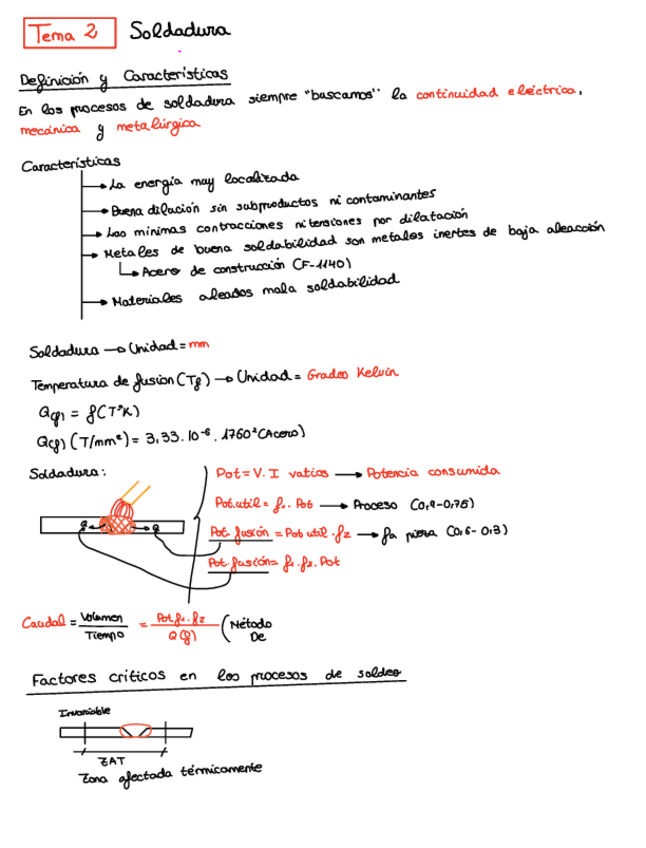 Tema 2 Soldadura
Definición y Características
En los procesos de soldadura siempre "buscamos" la continuidad eléctrica,
mecánica y metalúrgica
Características
La energía muy localizada
Buena dilución sin subproductos ni contaminantes
Las mínimas contracciones ni tensiones por dilatación
Metales de buena soldabilidad son metales inertes de baja aleacción
Acero de construcción (F-1140)
Materiales aleados mala soldabilidad
Soldadura → Unidad = mm
Temperatura de fusión (Tf) → Unidad = Grados Kelvin
Q(f) = f(T²K)
Q(f) (J/mm³) = 3,33 · 10⁻⁶ · 1760² (Acero)
Soldadura:
Pot = V. I vatios → Potencia consumida
Pot. util = f₁ · Pot → Proceso (0,9-0,75)
q q
Pot. fusión = Pot util · f2 → fa pieza (0,6-0,3)
Pot. fusión = f₁ · f₂ · Pot
Caudal = Volumen / Tiempo = Pot f₁ · f2 / Q(f) (Método De
Factores críticos en los procesos de soldeo
Invariable
ZAT
Zona afectada térmicamente